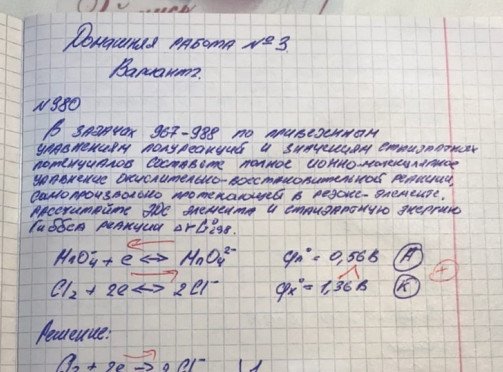 Домашняя работа №3.
Вариант 2.
№980
В задачах 967-988 по приведенным
уравнениям полуреакций и значениям стандартных
потенциалов составьте полное ионно-молекулярное
уравнение окислительно-восстановительной реакции,
самопроизвольно протекающей в редокс-элементе,
рассчитайте ЭДС элемента и стандартную энергию
Гиббса реакции ΔrG°298.
MnO4⁻ + e ⟷ MnO4²⁻ φA° = 0,56В (А)
Cl2 + 2e ⟷ 2Cl⁻ φK° = 1,36В (К) +
Решение:
Cl2 + 2e → 2Cl⁻ | 1